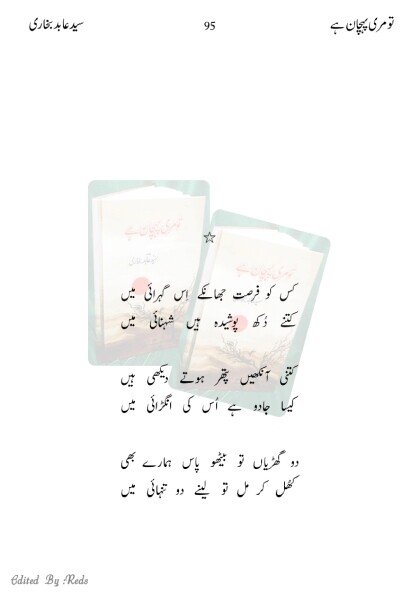 تو مری پہچان ہے 95 سید عابد بخاری
☆
کس کو فرصت جھانکے اِس گہرائی میں
کتنے دُکھ پوشیدہ ہیں شہنائی میں
کتنی آنکھیں پتھر ہوتے دیکھی ہیں
کیسا جادو ہے اُس کی انگڑائی میں
دو گھڑیاں تو بیٹھو پاس ہمارے بھی
کھُل کر مل تو لینے دو تنہائی میں
Edited By Reds